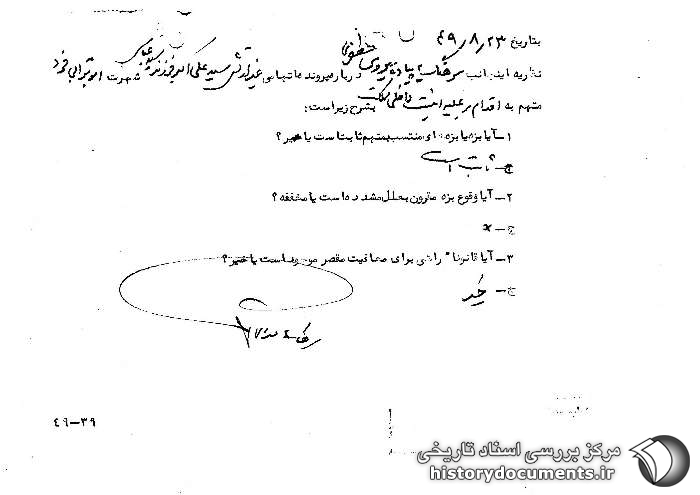 بتاریخ ۴۹/۸/۲۳
نظریه اینجانب سرگرد پیاده در باره پرونده اتهامی غیرنظامی سید علی اکبر فرزند سید عباس شهرت ابوترابی فرد
متهم به اقدام بر علیه امنیت داخلی مملکت بشرح زیر است :
۱ــ آیا بزه یا بزه های منتسب بمتهم ثابت است یا خیر ؟
ج ــ ثابت است
۲ــ آیا وقوع بزه مقرون بعلل مشدده است یا مخففه ؟
ج ــ x
۳ــ آیا قانونا" راهی برای معافیت مقصر موجود است یا خیر ؟
ج ــ خیر
۴۹-۳۹
مرکز بررسی اسناد تاریخی
historydocuments.ir